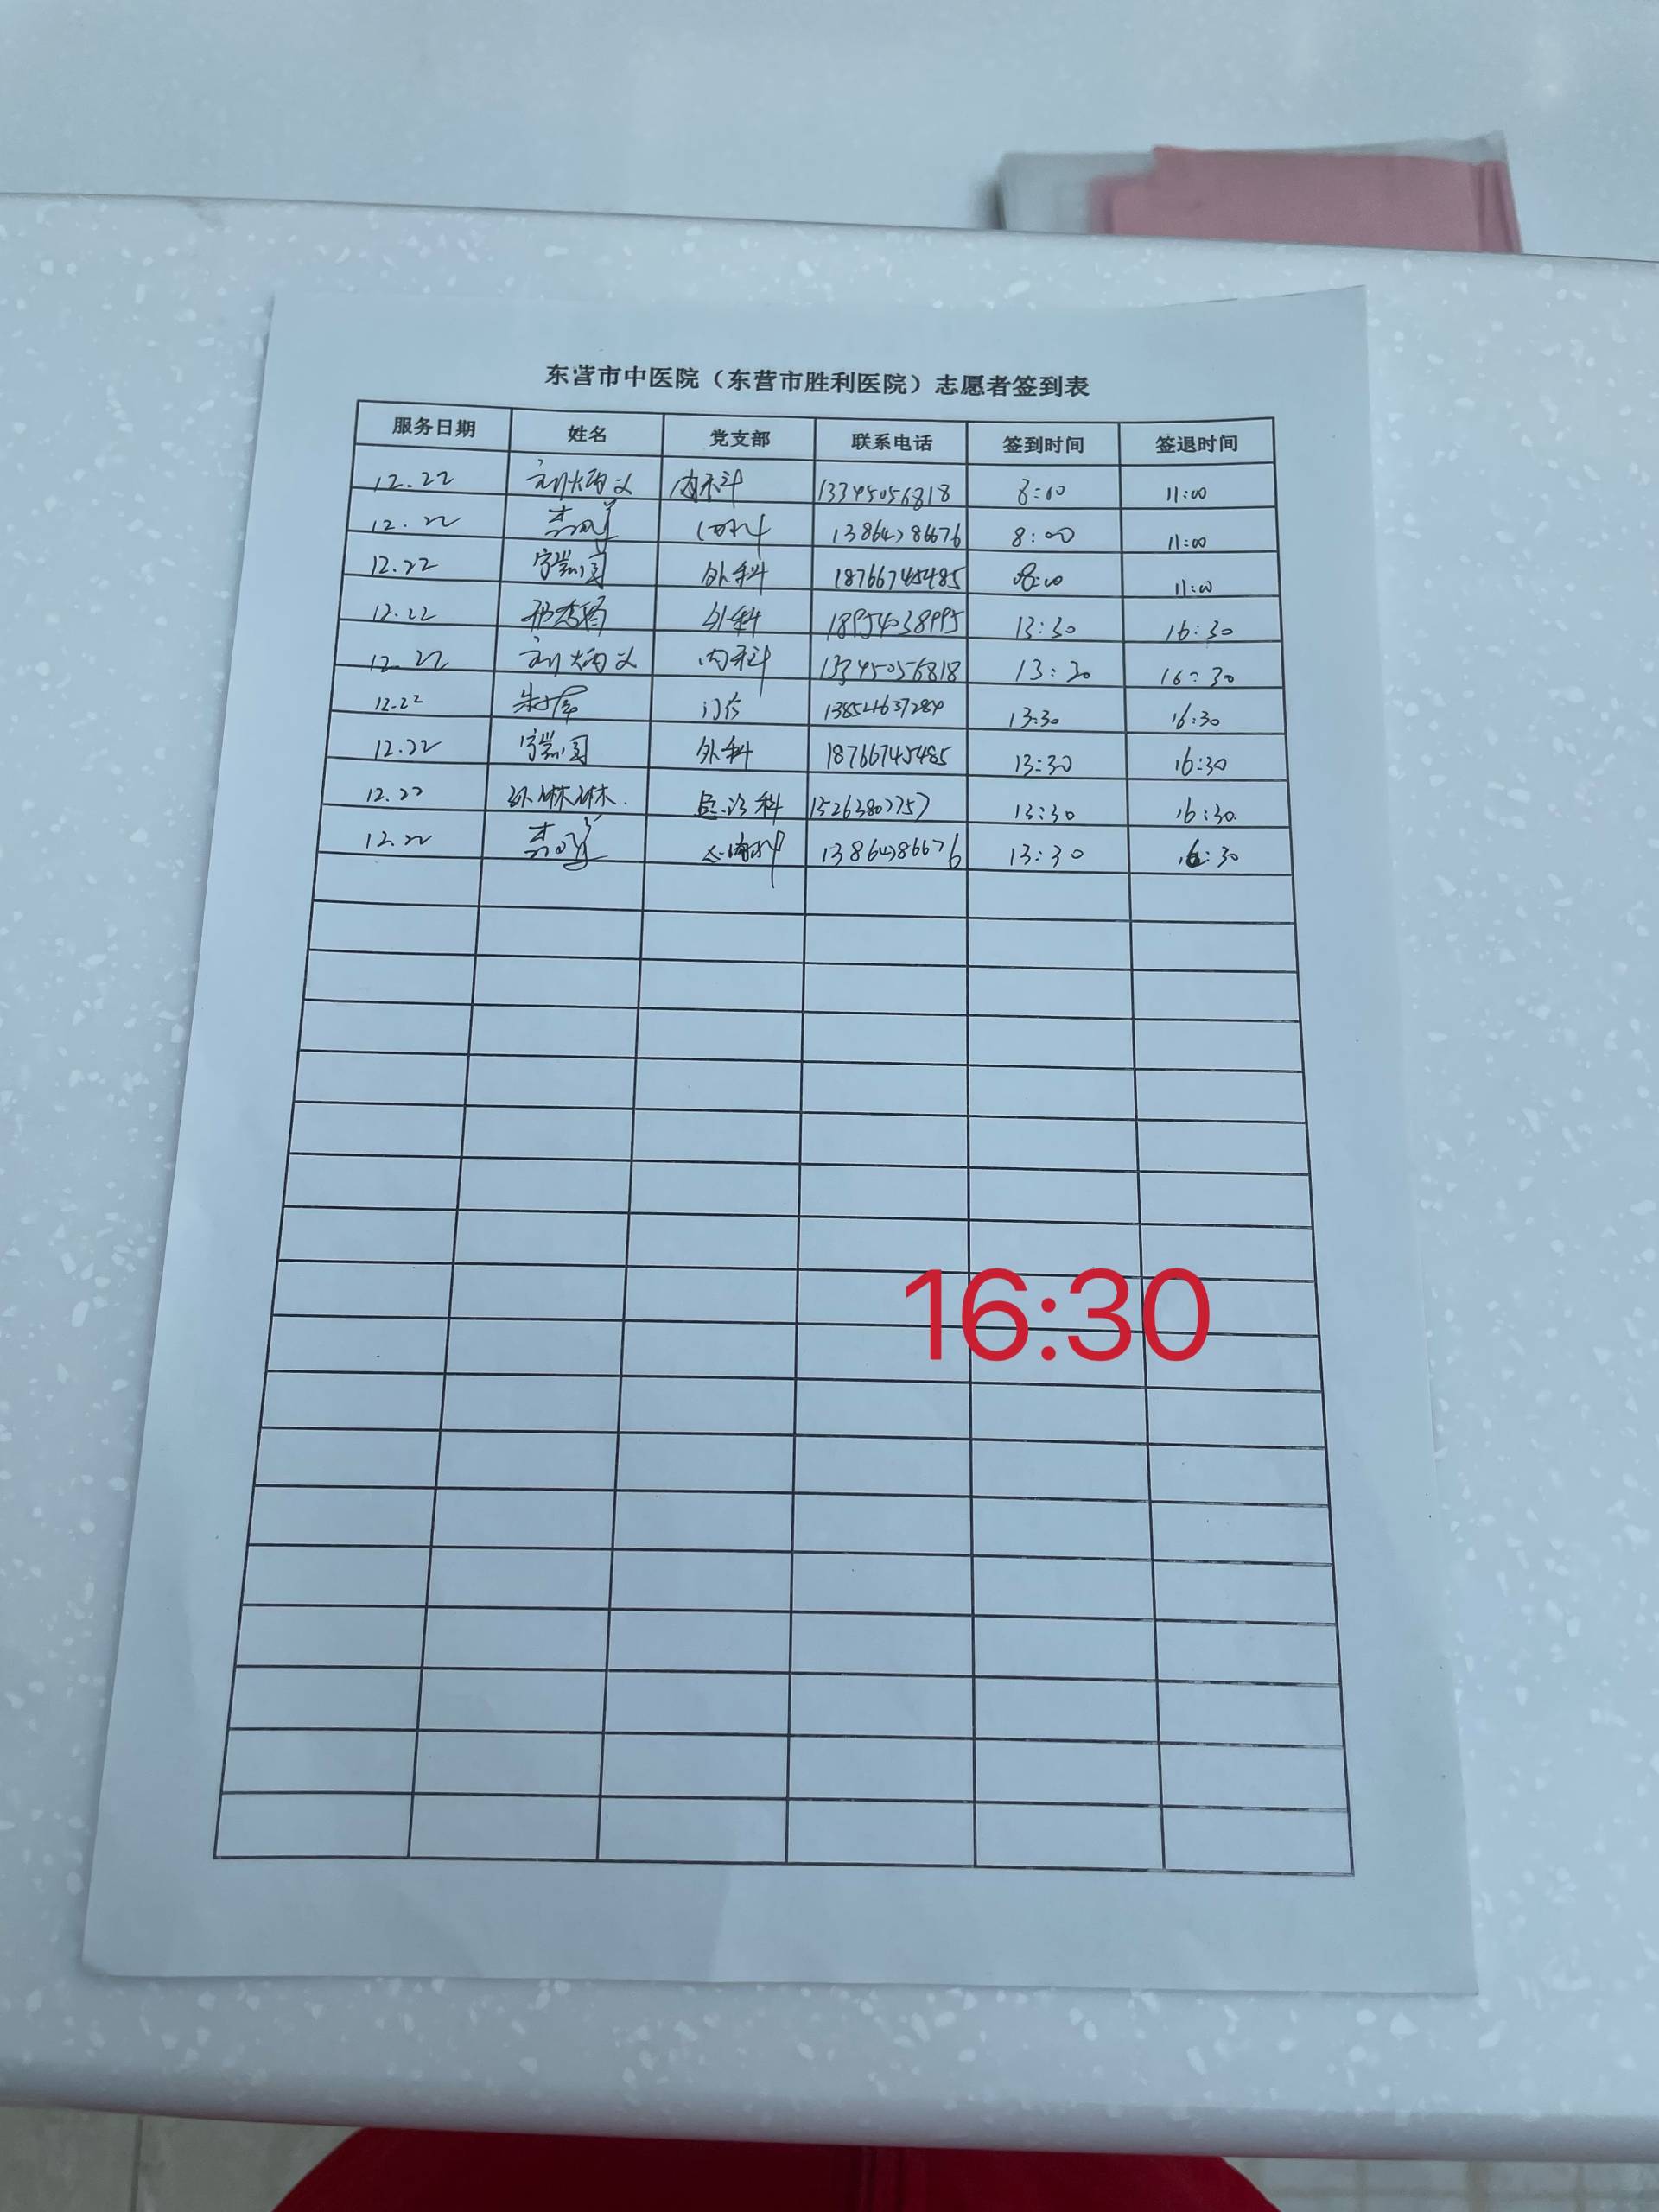 东营市中医院（东营市胜利医院）志愿者签到表
服务日期 姓名 党支部 联系电话 签到时间 签退时间
12.22 刘炳义 内科 13345056818 8:00 11:00
12.22 内科 13864786676 8:00 11:00
12.22 外科 18766745485 08:00 11:00
12.22 外科 18954038995 13:30 16:30
12.22 刘炳义 内科 13345056818 13:30 16:30
12.22 门诊 13854637284 13:30 16:30
12.22 外科 18766745485 13:30 16:30
12.22 孙琳琳 科 15263807757 13:30 16:30
12.22 内科 13864786676 13:30 16:30
16:30